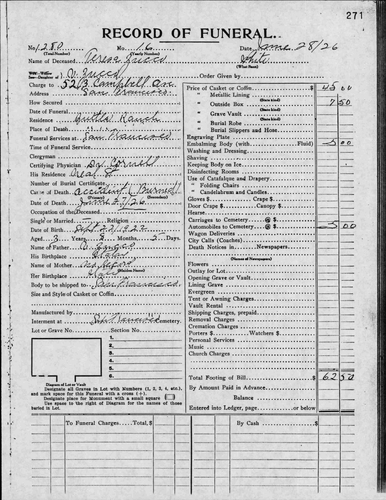 271
RECORD OF FUNERAL.
No. 1280 No. 16 Date June 28/26
(Total Number) (Yearly Number)
Name of Deceased Teresa White
(What Race)
Order Given by
Charge to 52 B Campbell Ave.
Address San Francisco
How Secured
Date of Funeral
Residence Ranch
Place of Death
Funeral Services at San Francisco
Time of Services
Clergyman
Certifying Physician Dr. Cornell
His Residence
Number of Burial Certificate
Cause of Death accident (Burned)
Date of Death June 27/26
Occupation of the Deceased
Single Religion
Date of Birth Sept 22 1922
Aged 3 Years 9 Months 5 Days
Name of Father
His Birthplace
Name of Mother
(Maiden Name)
Her Birthplace
Body to be shipped to San Francisco
Size and Style of Casket or Coffin
Manufactured by
Interment at San Francisco Cemetery.
Lot or Grave No. Section No.
1
2
3
4
5
6
Diagram of Lot or Vault
Designate all Graves in Lot with Numbers (1, 2, 3, 4, etc.), and mark space for this Funeral with a cross (+).
Designate place for Monument with a small square
Use space to the right of Diagram for the names of those buried in Lot.
Price of Casket or Coffin $ 45 00
(State kind)
" Metallic Lining
" Outside Box 7 50
(State kind)
" Grave Vault
(State kind)
" Burial Robe
" Burial Slippers and Hose
Engraving Plate
Embalming Body (with Fluid) $ 5 00
Washing and Dressing
Shaving
Keeping Body on Ice
Disinfecting Rooms
Use of Catafalque and Drapery
" Folding Chairs
" Candelabrum and Candles
Gloves $ Crape $
Door Crape $ Canopy $
Hearse
Carriages to Cemetery @ $
Automobiles to Cemetery @ $ 5 00
Wagon Deliveries
City Calls (Coaches)
Death Notices in Newspapers
(Names of Newspapers)
Flowers
Outlay for Lot
Opening Grave or Vault
Lining Grave
Evergreen
Tent or Awning Charges
Vault Rental
Shipping Charges, prepaid
Removal Charges
Cremation Charges
Porters $ Watchers $
Personal Services
Music
Church Charges
Total Footing of Bill $ 62 50
By Amount Paid in Advance
Balance
Entered into Ledger, page or below
To Funeral Charges Total $ By Cash $